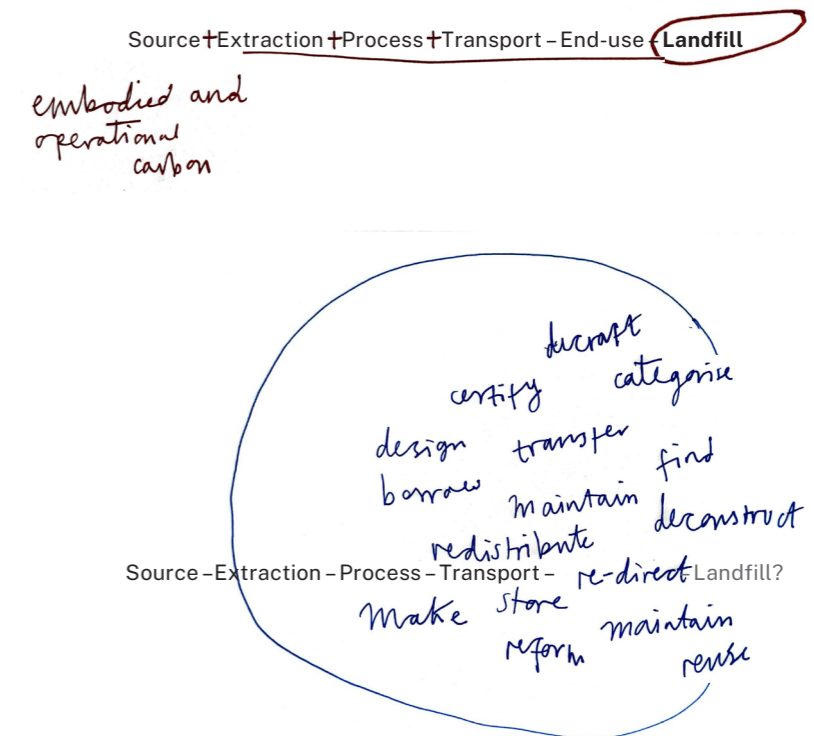 Source+Extraction+Process+Transport – End-use - Landfill
embodied and
operational
carbon
decraft
certify categorise
design transfer
find
borrow maintain
deconstruct
redistribute
Source – Extraction – Process – Transport – re-direct Landfill?
make store
reform maintain
reuse